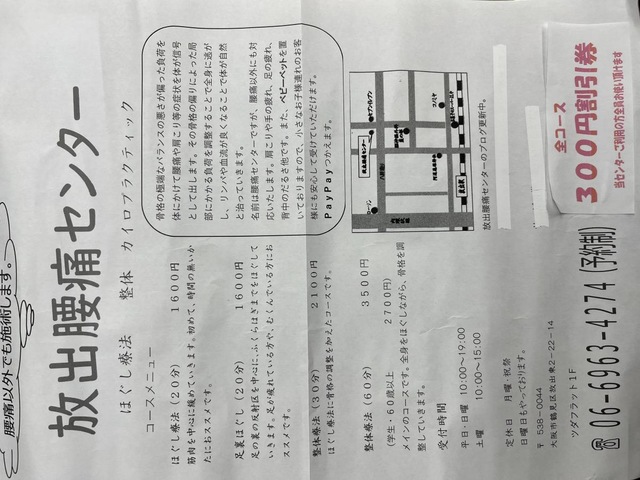 腰痛以外でも施術します。
放出腰痛センター
ほぐし療法　整体　カイロプラクティック
コースメニュー
ほぐし療法（20分）　1600円
筋肉を中心に緩めていきます。初めて、時間の無いか
たにおススメです。
足裏ほぐし（20分）　1600円
足の裏の反射区を中心に、ふくらはぎまでをほぐして
いきます。足が疲れている方や、むくんでいる方にお
ススメです。
整体療法（30分）　2100円
ほぐし療法に骨格の調整を加えたコースです。
整体療法（60分）　3500円
（学生・60歳以上　2700円）
メインのコースです。全身をほぐしながら、骨格を調
整していきます。
受付時間
平日・日曜　10:00～19:00
土曜　10:00～15:00
定休日　月曜／祝祭
日曜日もやっております。
〒538-0044
大阪市鶴見区放出東2-22-14
ツダフラット1F
☎06-6963-4274（予約制）
骨格の極端なバランスの悪さが偏った負荷を
体にかけて腰痛や肩こり等の症状を体が信号
として出します。その骨格の偏りによった局
部にかかる負荷を調整することで全身に逃が
し、リンパや血流が良くなることで体が自然
と治っていきます。
名前は腰痛センターですが、腰痛以外にも対
応いたします。肩こりや手の疲れ、足の疲れ、
背中のだるさ他です。また、ベビーベットを置
いておりますので、小さなお子様連れのお客
様にも安心して受けていただけます。
PayPayつかえます。
放出腰痛センターのブログ更新中。
全コース
300円割引券
当センターご利用の方全員お使い頂けます